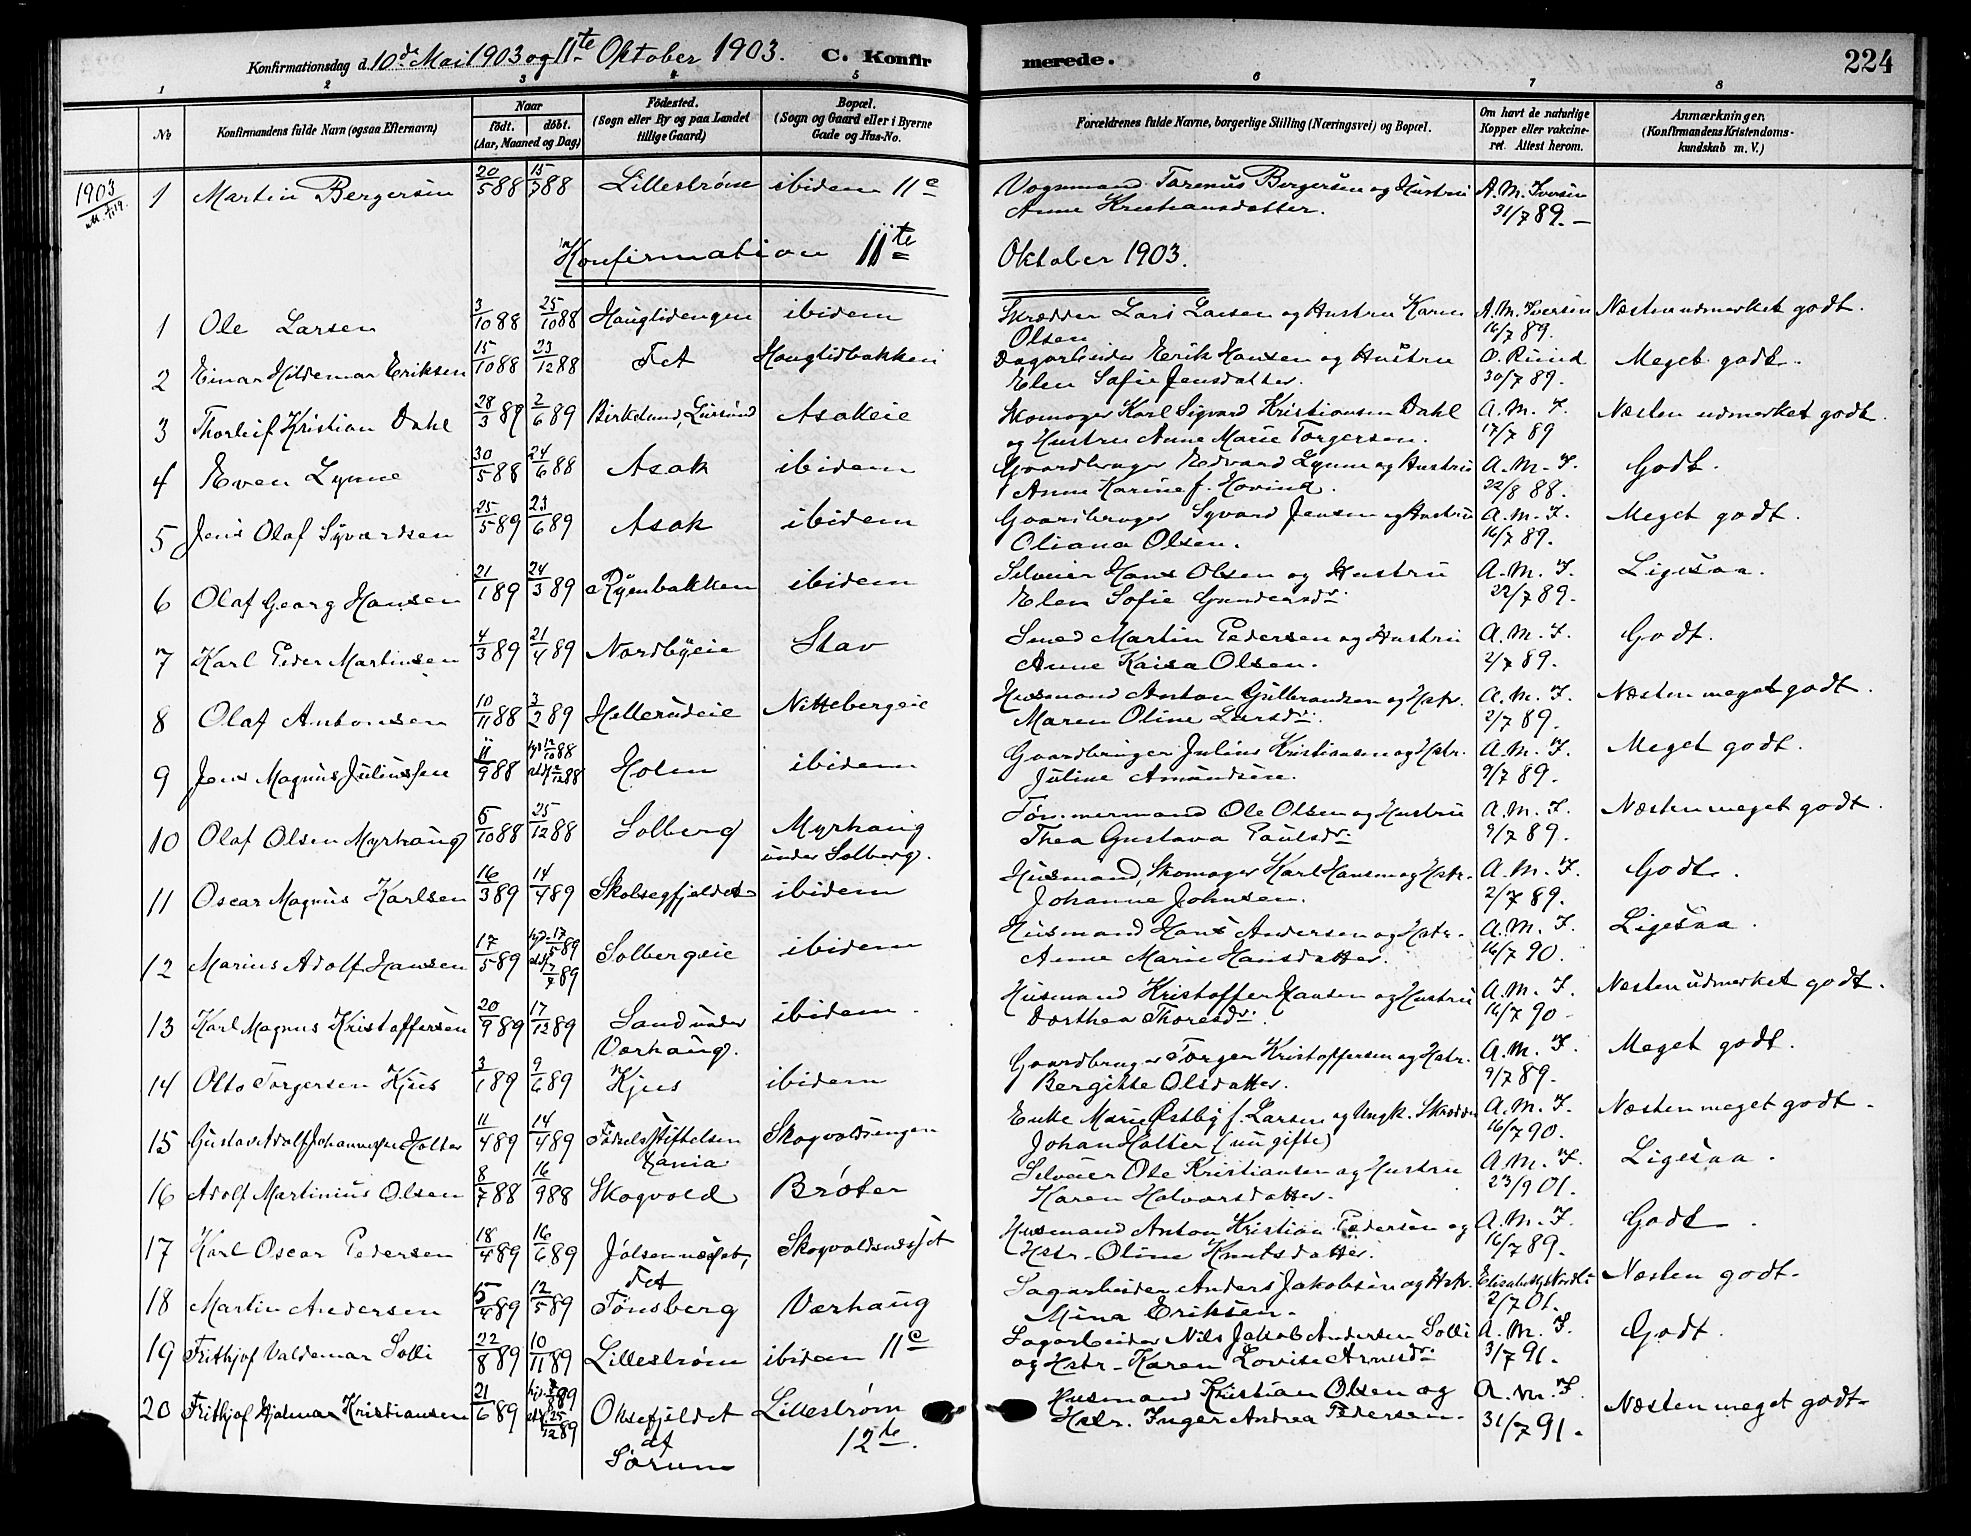 Konfirmationsdag d. 10de Mai 1903 og 11te Oktober 1903. C. Konfirmerede. 224
1 2 3 4 5 6 7 8
No Konfirmandens fulde Navn (ogsaa Efternavn) Naar født. døbt. (Aar, Maaned og Dag) Fødested. (Sogn eller By og paa Landet tillige Gaard) Bopæl. (Sogn og Gaard eller i Byerne Gade og Hus-No. Forældrenes fulde Navne, borgerlige Stilling (Næringsvei) og Bopæl. Om havt de naturlige Kopper eller vakcineret. Attest herom. Anmærkninger. (Konfirmandens Kristendomskundskab m. V.)
1903
1 Martin Bergersen 20/5 88 15/7 88 Lillestrøm ibidem 11e Vognmand Tarenus Bergersen og Hustru A. M. Iversen
Anne Kristiansdatter. 31/7 89.
Konfirmation 11te Oktober 1903.
1 Ole Larsen 3/10 88 25/10 88 Hauglidengen ibidem Skrædder Lars Larsen og Hustru Karen A. M. Iversen Næsten udmerket godt.
Olsen 16/7 89.
2 Einar Hildemar Eriksen 15/10 88 23/12 88 Fet Hauglidbakken Dagarbeider Eerik Hansen og Hustru O. Ruud Meget godt.
Elen Sofie Jensdatter. 30/7 89.
3 Thorleif Kristian Dahl 28/3 89 2/6 89 Birkelund, Asakeie Skomager Karl Sigvard Kristiansen Dahl A. M. I. Næsten udmerket godt.
og Hustru Anne Marie Torgersen. 17/7 89
4 Even Lynne 30/5 88 24/6 88 Asak ibidem Gaardbruger Edvard Lynne og Hustru A. M. I. Godt.
Anne Karine f. Hovind. 22/8 88.
5 Jens Olaf Syvardsen 25/5 89 23/6 89 Asak ibidem Gaardbruger Syvard Jensen og Hustru A. M. I. Meget godt.
Oliana Olsen. 16/7 89.
6 Olaf Georg Hansen 21/1 89 24/3 89 Ryenbakken ibidem Selveier Hans Olsen og Hustru A. M. I. Ligesaa.
Elen Sofie Gundersdr. 22/7 89.
7 Karl Peder Martinsen 4/3 89 21/4 89 Nordbyeie Stav Smed Martin Pedersen og Hustru A. M. I. Godt.
Anne Kaisa Olsen. 2/7 89.
8 Olaf Antonsen 10/11 88 3/2 89 Hellerudeie Nittebergeie Husmand Anton Gulbrandsen og Hstr. A. M. I. Næsten meget godt.
Maren Oline Larsdr. 2/7 89.
9 Jens Magnus Juliussen 11/9 88 hjd 12/10 88 Holm ibidem Gaardbruger Julius Kristiansen og Hstr. A. M. I. Meget godt.
Juline Amundsen. 9/7 89.
10 Olaf Olsen Myrhaug 5/10 88 25/12 88 Solberg Myrhaug Tømmermand Ole Olsen og Hustru A. M. I. Næsten meget godt.
under Solberg. Thea Gustava Paulsdr 9/7 89.
11 Oscar Magnus Karlsen 16/3 89 14/4 89 Skolsegfjeldet ibidem Husmand, Skomager Karl Hansen og Hstr. A. M. I. Godt.
Johanne Johnsen. 2/7 89.
12 Marius Adolf Hansen 17/5 89 hjd. 17/5 89 7/7 89 Solbergeie ibidem Husmand Hans Andersen og Hstr. A. M. I. Ligesaa.
Anne Marie Hansdatter. 16/7 90.
13 Karl Magnus Kristoffersen 20/9 89 17/12 89 Sand under ibidem. Husmand Kristoffer Hansen og Hustru A. M. I. Næsten udmerket godt.
Værhaug. Dorthea Thoresdr. 16/7 90
14 Otto Torgersen Kjus 3/1 89 9/6 89 Kjus ibidem Gaardbruger Torger Kristoffersen og Hstr. A. M. I. Meget godt.
Bergitte Olsdatter. 9/7 89.
15 Gustav Adolf Johannessen Holter 11/4 89 14/4 89 Fødselsstiftelsen Skogvoldsengen Enke Marie Østby f. Larsen og Ungk. Skrædder A. M. I. Næsten meget godt.
Kania Johan Holter (nu gifte) 16/7 90.
16 Adolf Martinius Olsen 8/7 88 16/9 88 Skogvold Brøter Selveier Ole Kristiansen og Hustru A. M. I. Ligesaa.
Karen Halvorsdatter. 23/9 01.
17 Karl Oscar Pedersen 18/4 89 16/6 89 Jølsennæsset, Skogvoldsnæsset Husmand Anton Kristian Pedersen og A. M. I. Godt.
Fet Hstr. Oline Knutsdatter. 16/7 89.
18 Martin Andersen 5/4 89 12/5 89 Tønsberg Værhaug Sagarbeider Anders Jakobsen og Hstr. Elisabeth Nordli Næsten godt.
Mina Eriksen. 2/7 01.
19 Frithjof Valdemar Solli 22/8 89 10/11 89 Lillestrøm ibidem 11e Sagarbeider Nils Jakob Andersen Solli A. M. I. Godt.
og Hstr. Karen Lovise Arnesdr. 3/7 91.
20 Frithjof Hjalmar Kristiansen 21/6 89 25/12 89 Oksefjeldet Lillestrøm Husmand Kristian Olsen og A. M. I. Næsten meget godt.
af Sørum 12te. Hstr. Inger Andrea Pedersen. 31/7 91.